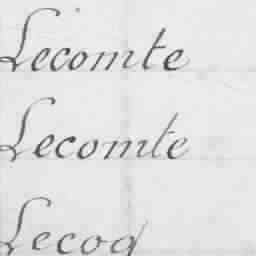 Lecomte
Lecomte
Lecoq